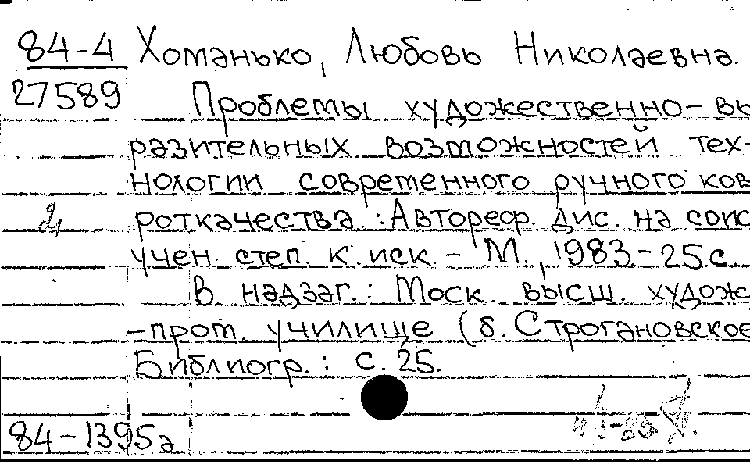 84-4 Хоманько, Любовь Николаевна.
27589
Проблемы художественно-вы
разительных возможностей тех-
нологии современного ручного ков
роткачества : Автореф. дис. на соис
учен. степ. к. иск. - М., 1983 - 25 с.
В надзаг.: Моск. высш. худож
-пром. училище (б. Строгановское
Библиогр.: с. 25.
84-1395а